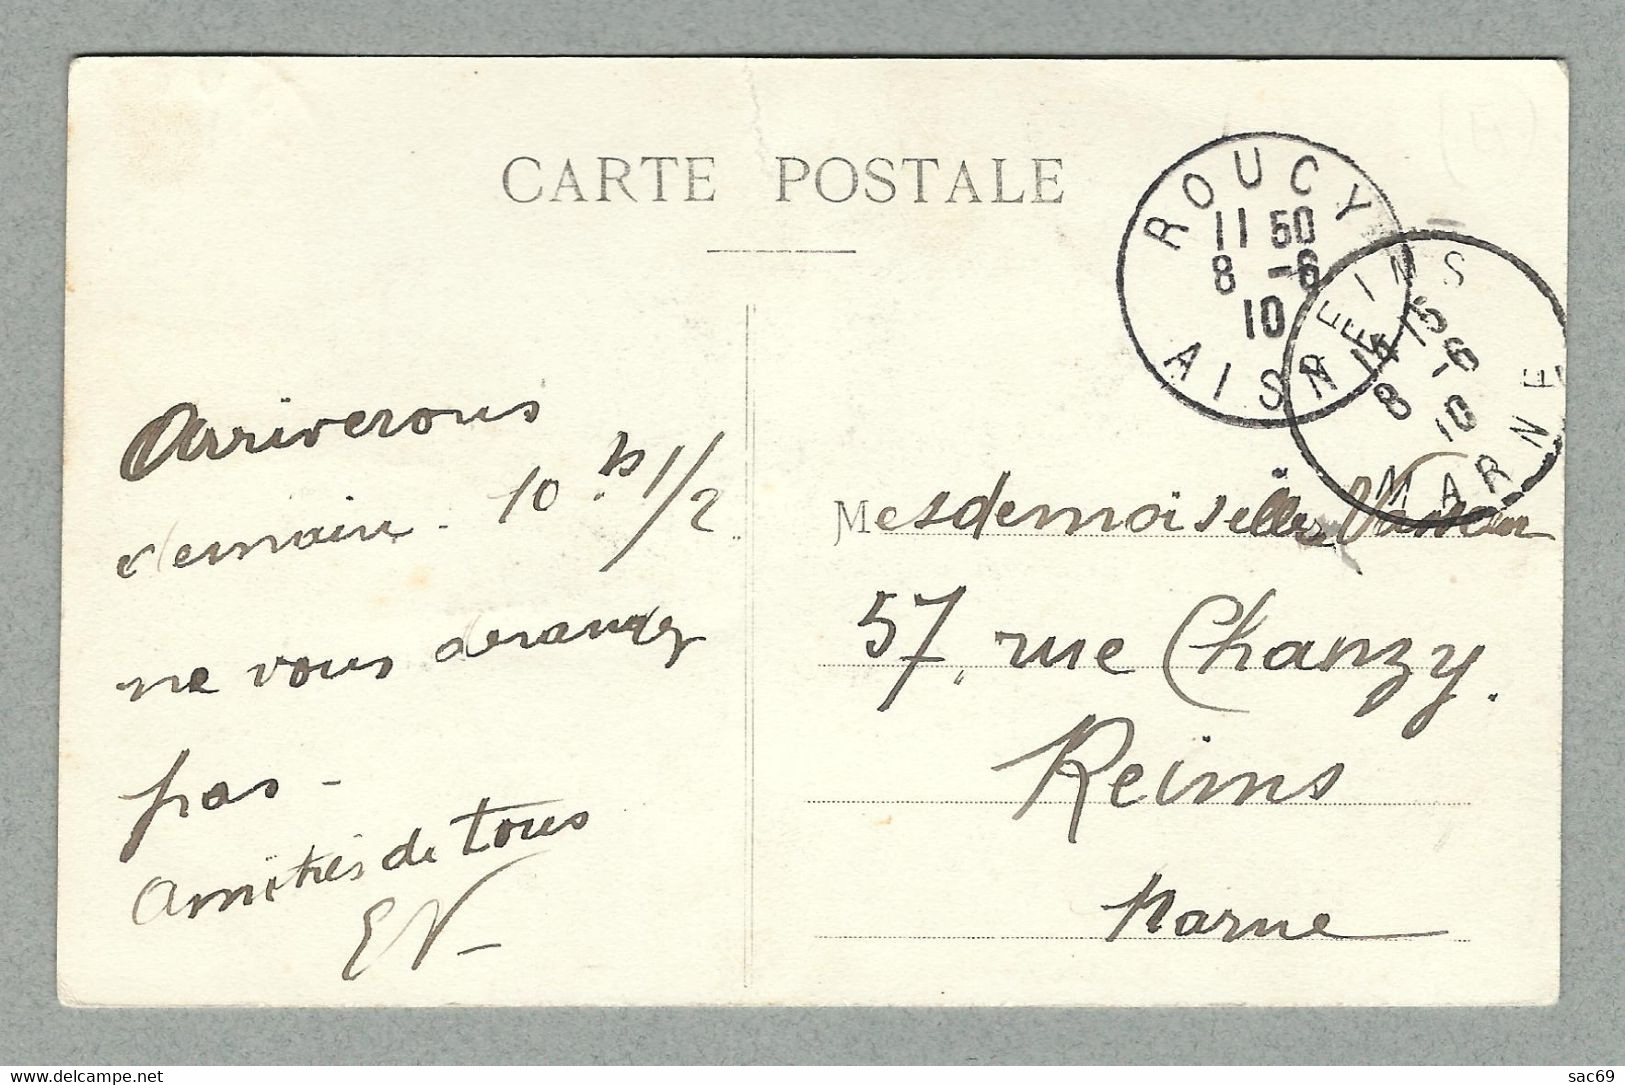 CARTE POSTALE
ROUCY
11 50
8 -6
10
AISNE
REIMS
15
8 -6
10
MARNE
Arriverons
demain. 10 h 1/2
ne vous derangez
pas -
Amitiés de tous
EV
Mesdemoiselles
57, rue Chanzy.
Reims
Marne
www.delcampe.net
sac69